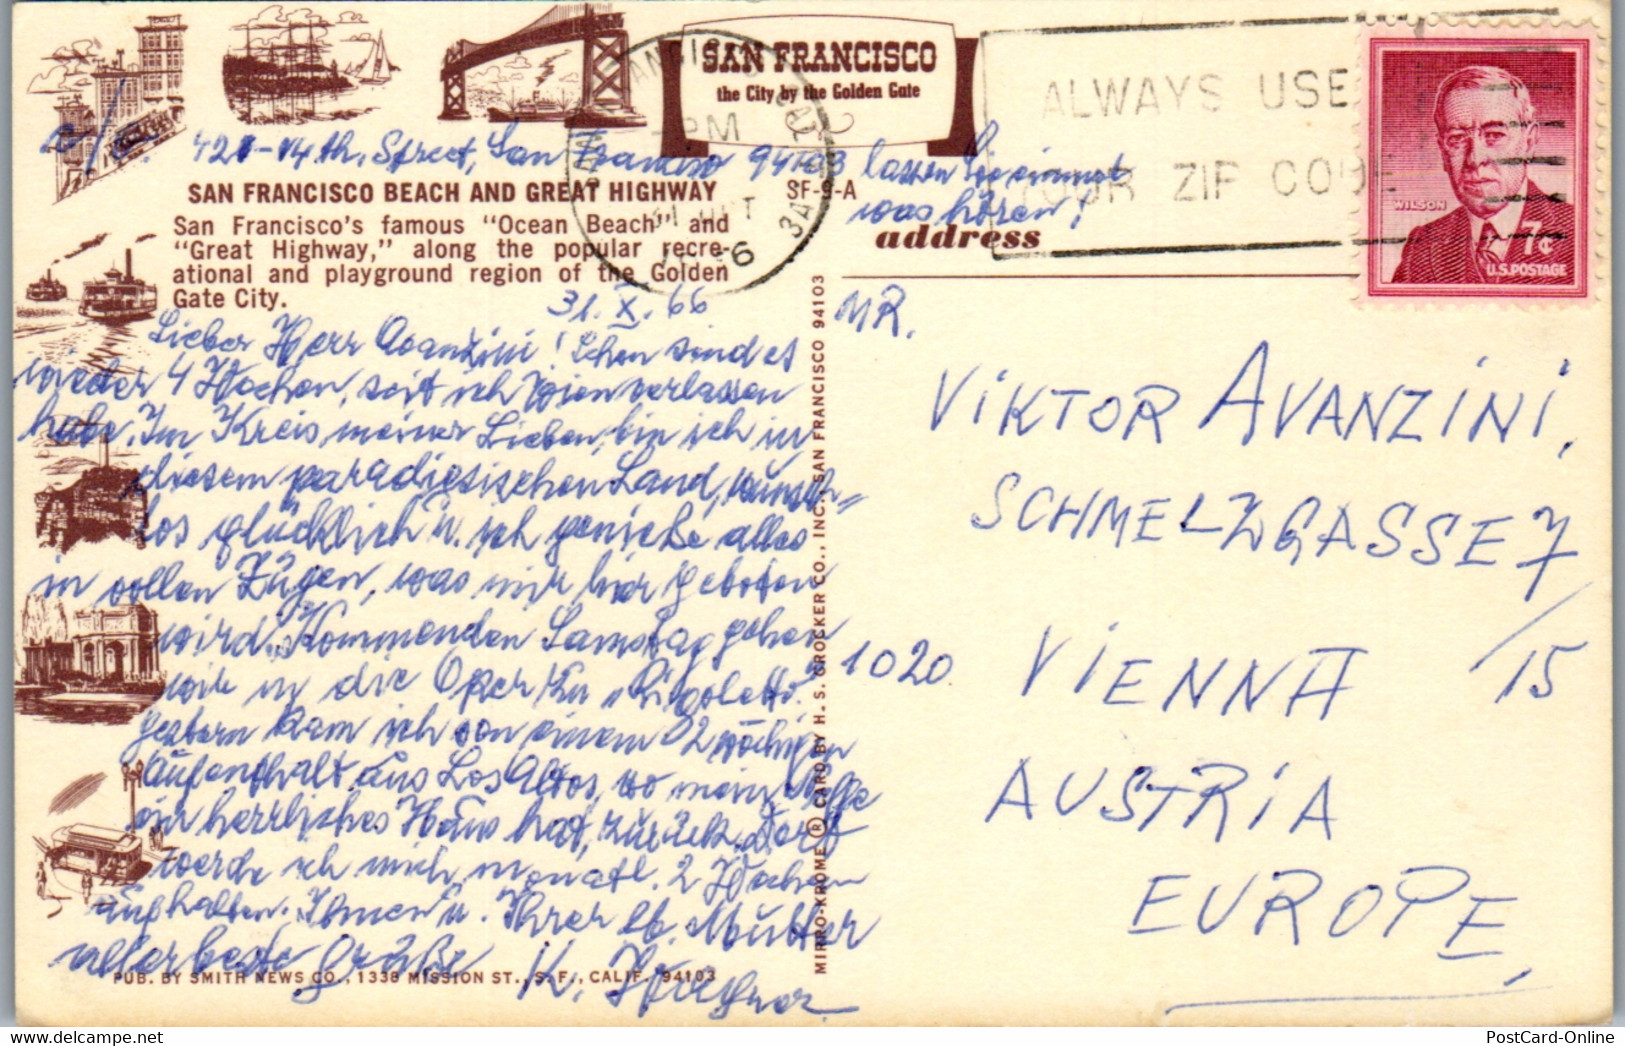 SAN FRANCISCO
the City by the Golden Gate
SAN FRANCISCO, CALIF.
PM
31 OCT
ALWAYS USE
YOUR ZIP CODE
WILSON
7¢
U.S. POSTAGE
421-14th, Street, San Francisco 94103 lassen Sie einmal
was hören!
SAN FRANCISCO BEACH AND GREAT HIGHWAY SF-9-A
San Francisco's famous "Ocean Beach" and
"Great Highway," along the popular recre-
ational and playground region of the Golden
Gate City.
address
31. X. 66
Lieber Herr Avanzini! Schon sind es
wieder 4 Wochen, seit ich Wien verlassen
habe. Im Kreis meiner Lieben, bin ich in
diesem paradiesischen Land, wunsch-
los glücklich u. ich genieße alles
in vollen Zügen, was mir hier geboten
wird. Kommenden Samstag gehen
wir in die Oper zu „Rigoletto".
Gestern kam ich von einem 2 wöchigen
Aufenthalt aus Los Altos, wo mein Neffe
ein herrliches Haus hat, zurück. Dort
werde ich mich monatl. 2 Wochen
aufhalten. Ihnen u. Ihrer lb. Mutter
allerbeste Grüße K. Wagner
MR.
VIKTOR AVANZINI,
SCHMELZGASSE 7
/15
1020 VIENNA
AUSTRIA
EUROPE,
MIRRO-KROME ® CARD BY H. S. CROCKER CO., INC., SAN FRANCISCO 94103
PUB. BY SMITH NEWS CO., 1338 MISSION ST., S. F., CALIF. 94103
Visit our eBay store
PostCard-Online